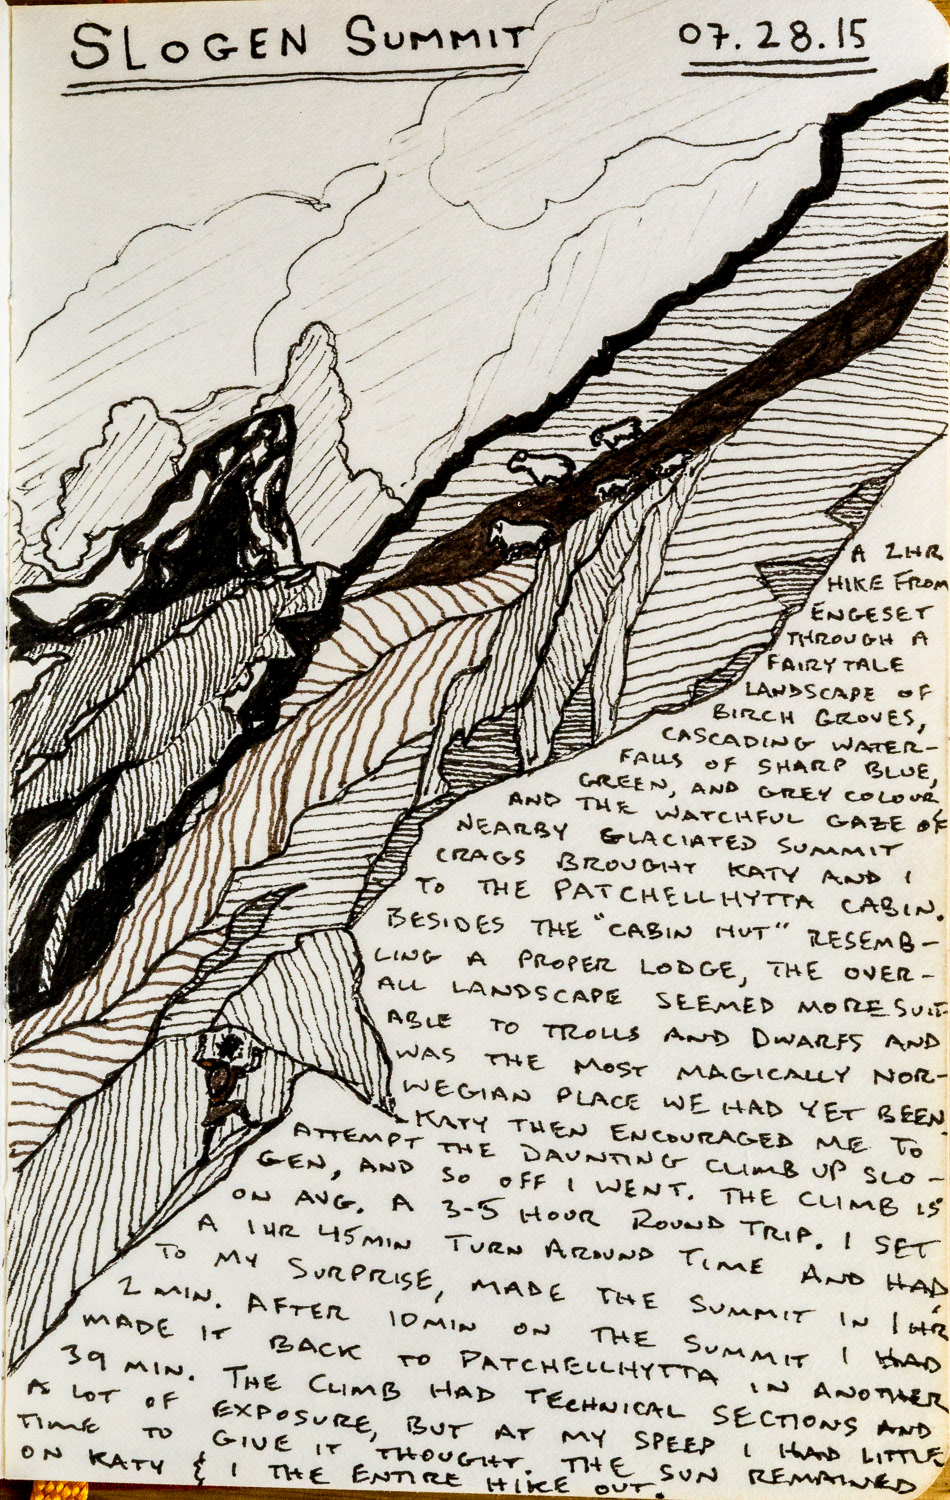 SLOGEN SUMMIT
07.28.15
A 2HR
HIKE FROM
ENGESET
THROUGH A
FAIRYTALE
LANDSCAPE OF
BIRCH GROVES,
CASCADING WATER-
FALLS OF SHARP BLUE,
GREEN, AND GREY COLOUR,
AND THE WATCHFUL GAZE OF
NEARBY GLACIATED SUMMIT
CRAGS BROUGHT KATY AND I
TO THE PATCHELLHYTTA CABIN.
BESIDES THE "CABIN HUT" RESEMB-
LING A PROPER LODGE, THE OVER-
ALL LANDSCAPE SEEMED MORE SUIT-
ABLE TO TROLLS AND DWARFS AND
WAS THE MOST MAGICALLY NOR-
WEGIAN PLACE WE HAD YET BEEN.
KATY THEN ENCOURAGED ME TO
ATTEMPT THE DAUNTING CLIMB UP SLO-
GEN, AND SO OFF I WENT. THE CLIMB IS
ON AVG. A 3-5 HOUR ROUND TRIP. I SET
A 1HR 45MIN TURN AROUND TIME AND HAD,
TO MY SURPRISE, MADE THE SUMMIT IN 1HR
2 MIN. AFTER 10MIN ON THE SUMMIT I HAD
MADE IT BACK TO PATCHELLHYTTA IN ANOTHER
39 MIN. THE CLIMB HAD TECHNICAL SECTIONS AND
A LOT OF EXPOSURE, BUT AT MY SPEED I HAD LITTLE
TIME TO GIVE IT THOUGHT. THE SUN REMAINED
ON KATY & I THE ENTIRE HIKE OUT.